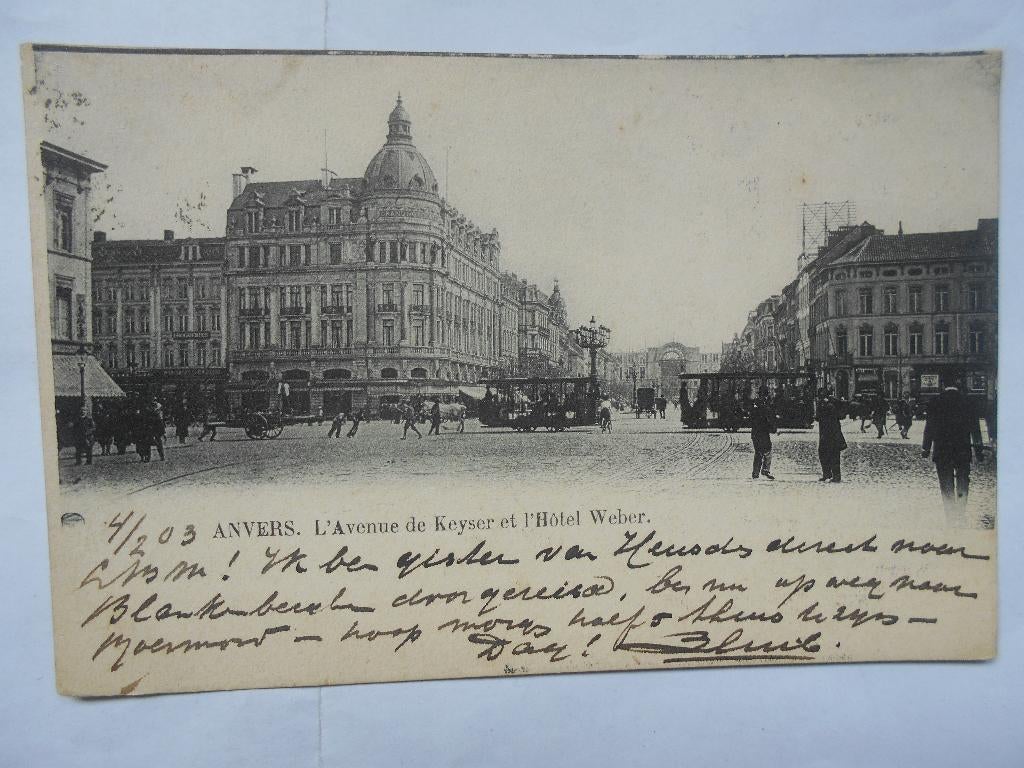 4/2 03 ANVERS. L'Avenue de Keyser et l'Hôtel Weber.
! Ik ben gister van Heusde direct naar
Blankenberghe doorgereisd, ben nu op weg naar
– hoop morgen half 5 thuis te zijn –
Dag!